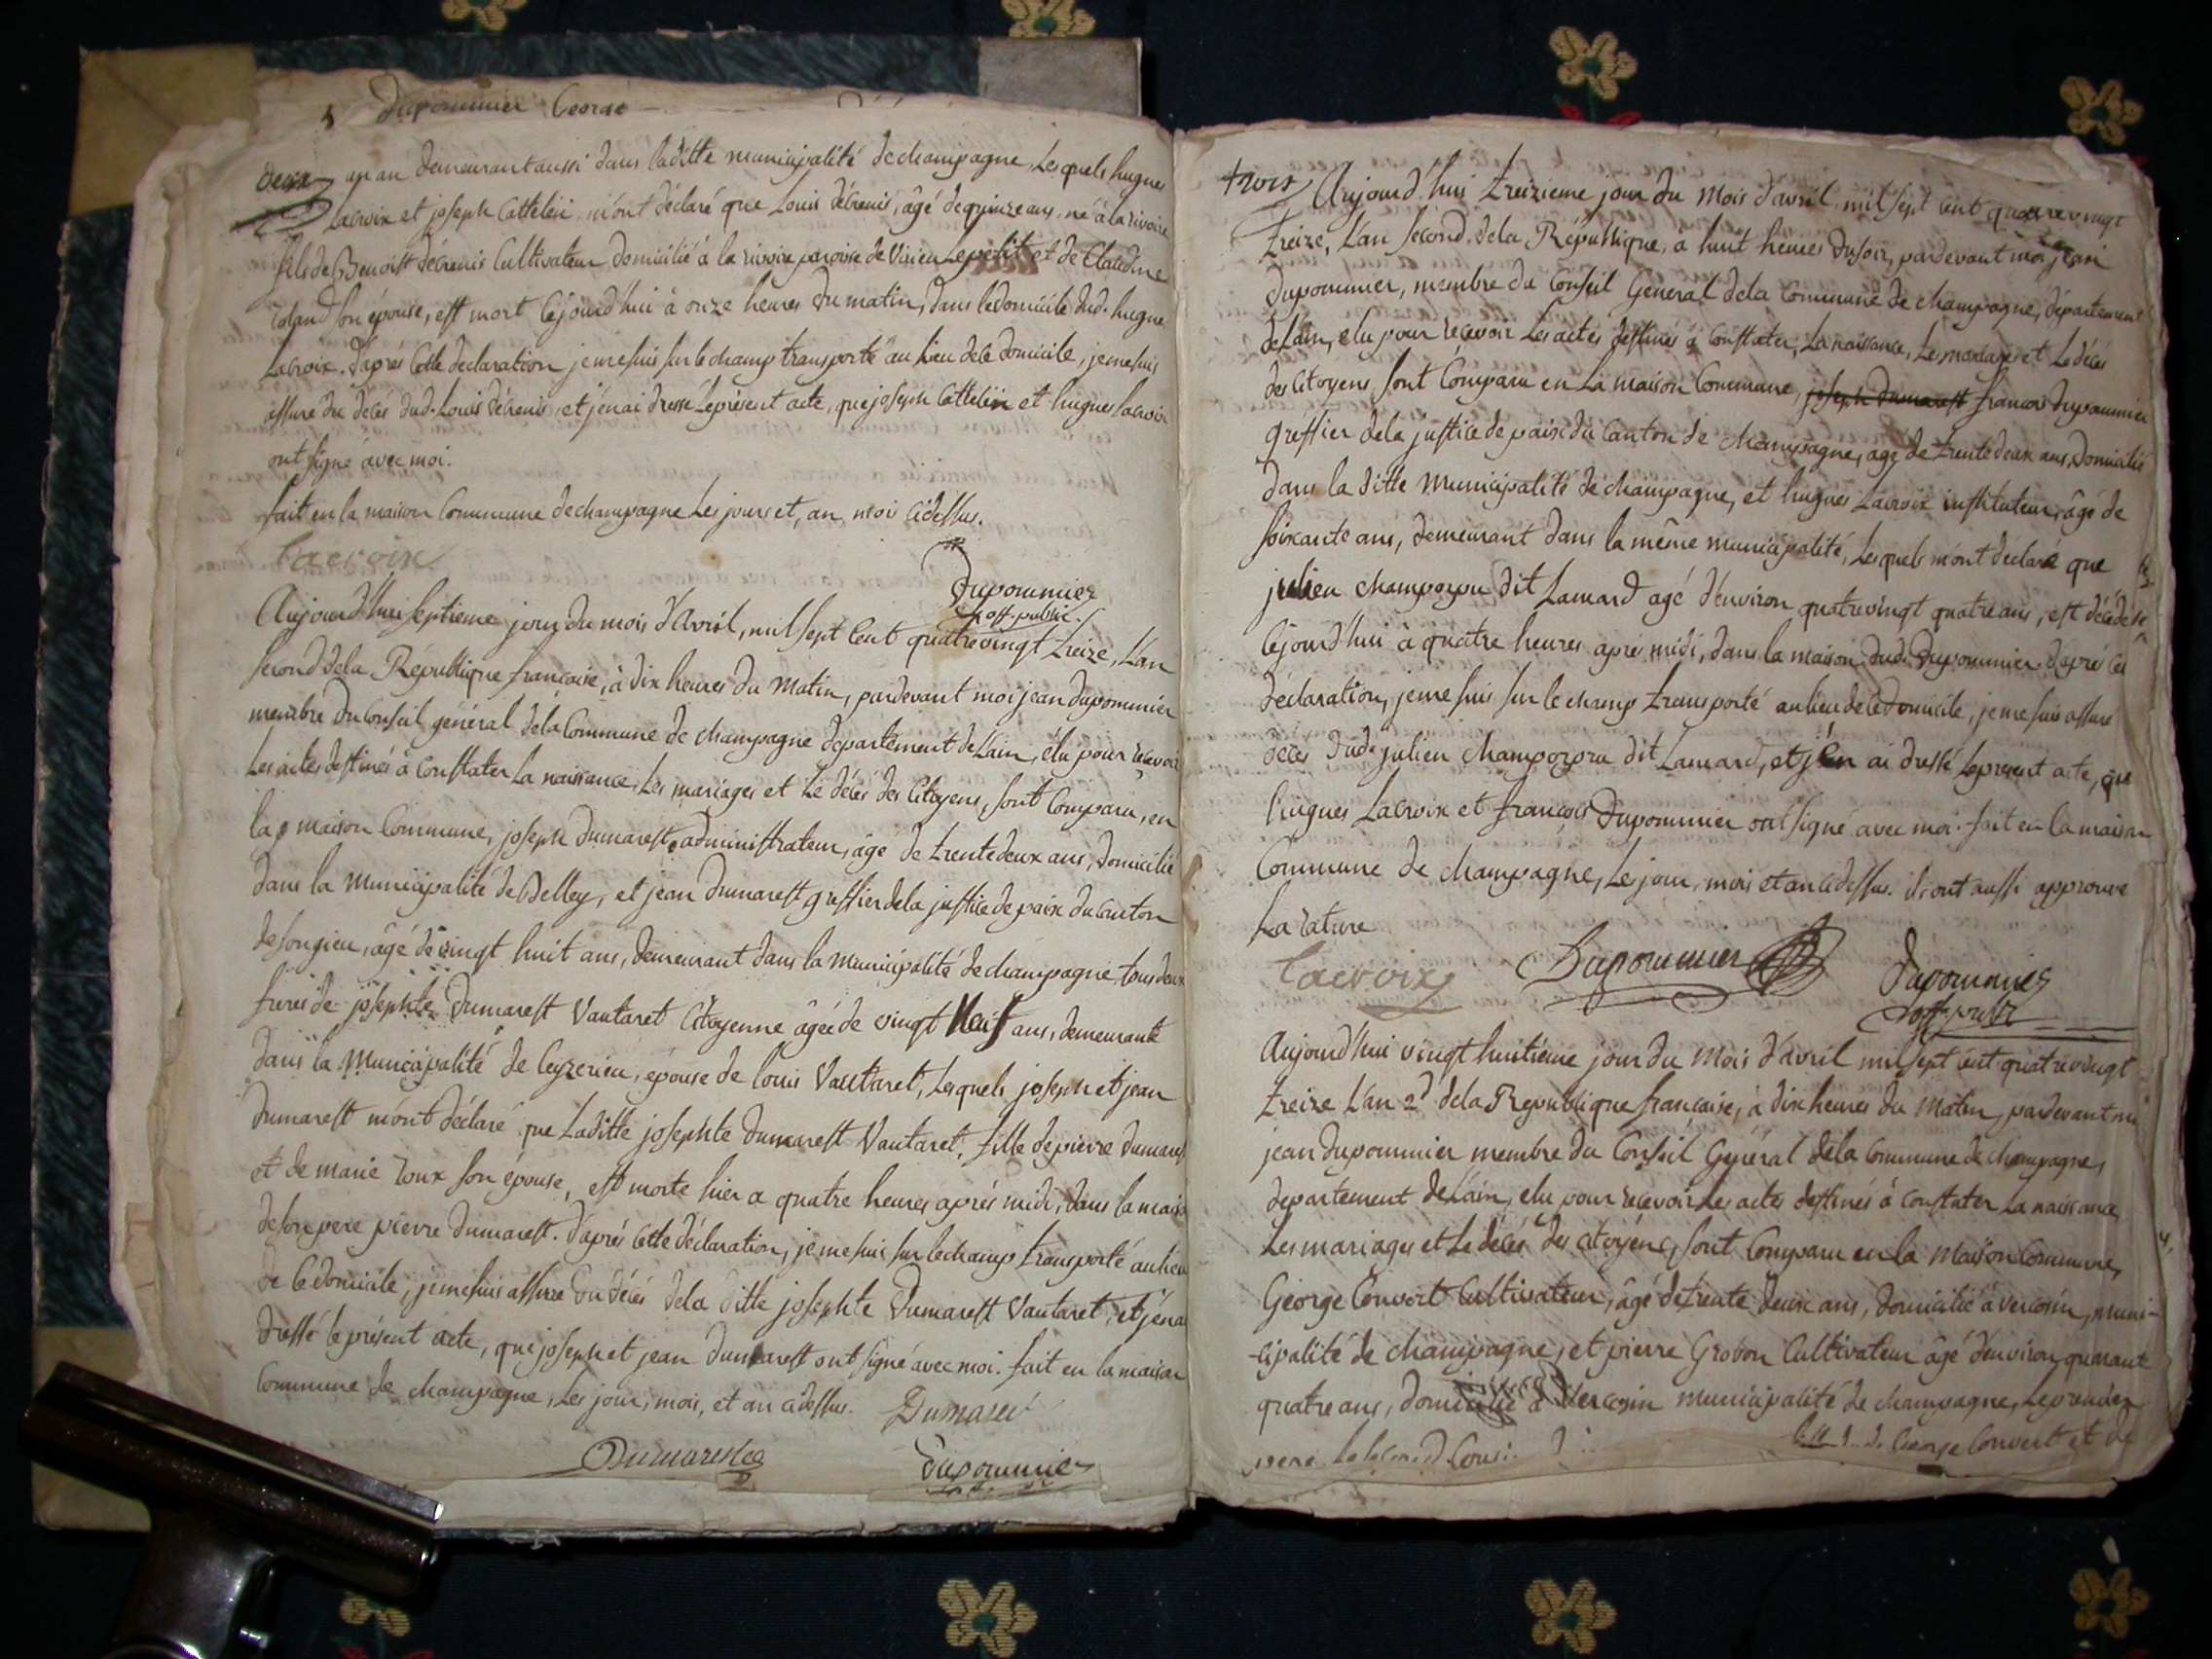 Dupommier George
deux
un an demeurant aussi dans laditte municipalité de champagne, Lesquels hugues
Lacroix et joseph Cattelin m'ont déclaré que Louis débrenis, âgé de quinze ans, né à la rivoire
fils de Benoist débrenis Cultivateur domicilié à la rivoire paroisse de Virieu Lepetit et de Claudine
son épouse, est mort Cejourd'hui à onze heures du matin, dans ledomicile dud. hugue
Lacroix. d'après Cette declaration jemesuis sur lechamp transporté au Lieu dece domicile, jemesuis
assuré du décès dud. Louis débrenis, et j'enai dressé Leprésent acte, que joseph Cattelin et hugues lacroix
ont signé avec moi.
fait en la maison Commune de champagne Les jours et, an, mois Cidessus.
Lacroix
Dupommier
off. public.
Aujourd'hui septieme jour du mois d'Avril, mil sept Cent quatre vingt treize, L'an
second dela République francaise, à dix heures du Matin, pardevant moi jean dupommier
membre du Conseil général dela Commune de champagne département de L'ain, élu pour recevoir
Les actes destinés à Constater La naissance, Les mariages et Le décès des Citoyens, sont Comparu, en
la maison Commune, joseph Dumarest administrateur, âgé de trente deux ans, domicilié
dans la Municipalité de Belley, et jean Dumarest greffier dela justice de paix du Canton
de songieu, âgé de vingt huit ans, demeurant dans la Municipalité de champagne, tous deux
freres de josephte Dumarest Vautaret Citoyenne âgée de vingt Neuf ans, demeurante
dans la Municipalité de Ceyzerieu, épouse de Louis Vautaret, Lesquels joseph et jean
dumarest m'ont déclaré que Laditte josephte dumarest Vautaret, fille de pierre dumarest
et de marie roux son épouse, est morte hier a quatre heures après midi, dans la maison
de son pere pierre dumarest. d'après Cette déclaration, jemesuis sur lechamp transporté au lieu
de Ce domicile, jemesuis assuré du décès dela ditte josephte Dumarest Vautaret, et j'enai
dressé le présent acte, que joseph et jean dumarest ont signé avec moi. fait en la maison
Commune de champagne, Les jour, mois, et an cidessus.
Dumarest
Dumarest
Dupommier
trois
Aujourd'hui treizieme jour du Mois d'avril mil sept Cent quatre vingt
treize, L'an second dela République, à huit heures du soir, pardevant moi jean
dupommier, membre du Conseil Général dela Commune de champagne, département
de L'ain, elu pour recevoir Les actes destinés à Constater, La naissance, Les mariages et Le décès
des Citoyens, sont Comparu en La maison Commune, joseph dumarest francois dupommier
greffier dela justice de paix du Canton de Champagne, âgé de trente deux ans, domicilié
dans la ditte Municipalité de champagne, et hugues Lacroix instituteur, âgé de
soixante ans, demeurant dans la même municipalité, Lesquels m'ont déclaré que
julien champozou dit Lamard agé d'environ quatrevingt quatre ans, est décédé
Cejourd'hui à quatre heures après midi, dans la maison dud. Dupommier. d'après Ces
déclaration, jeme suis sur le champ transporté au lieu de ce domicile, je me suis assuré
décès dud. julien champozou dit Lamard, et j'en ai dressé Lepresent acte, que
hugues Lacroix et françois Dupommier ont signé avec moi. fait en la maison
Commune de champagne, Les jour, mois et an cidessus. ils ont aussi approuvé
La rature
Lacroix
Dupommier
Dupommier
off. public
Aujourd'hui vingt huitieme jour du Mois d'avril mil sept cent quatre vingt
treize L'an 2d dela Republique francaise, à dix heures du Matin, pardevant moi
jean dupommier membre du Conseil Général dela Commune de champagne,
departement de L'ain, elu pour recevoir Les actes destinés à constater La naissance
Les mariages et Le décès des citoyens, sont Comparu en la maison Commune,
George Convert Cultivateur, âgé de trente deux ans, domicilié à vercosin, muni-
-cipalité de champagne, et pierre Grobon Cultivateur âgé d'environ quarante
quatre ans, domicilié à Vercosin municipalité de champagne, Le premier
pere Le second George Convert et de